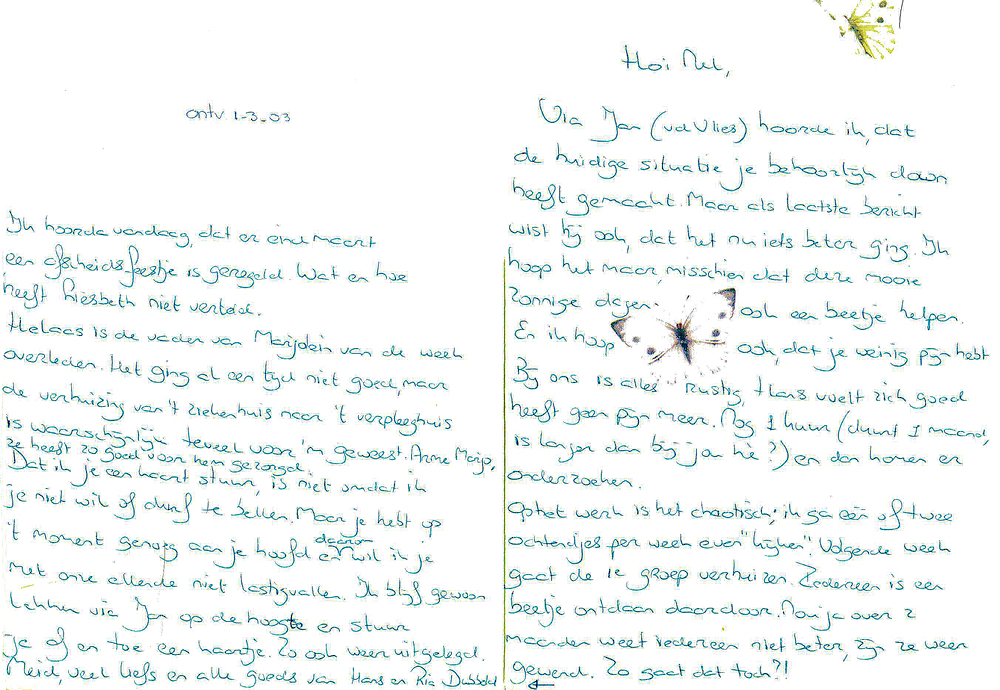 Hoi Nel,
Via Jan (vd Vlies) hoorde ik, dat
de huidige situatie je behoorlijk down
heeft gemaakt. Maar als laatste bericht
wist hij ook, dat het nu iets beter ging. Ik
hoop het maar, misschien dat deze mooie
zonnige dagen ook een beetje helpen.
En ik hoop ook, dat je weinig pijn hebt
Bij ons is alles rustig, Hans voelt zich goed
heeft geen pijn meer. Nog 1 kuur (duurt 1 maand,
is langer dan bij jou hè?) en dan komen er
onderzoeken.
Op het werk is het chaotisch; ik ga één of twee
ochtendjes per week even "kijken". Volgende week
gaat de 1e groep verhuizen. Iedereen is een
beetje ontdaan daardoor. Nou ja over 2
maanden weet iedereen niet beter, zijn ze weer
gewend. Zo gaat dat toch?!
ontv 1-3-03
Ik hoorde vandaag, dat er eind maart
een afscheidsfeestje is geregeld. Wat en hoe
heeft Liesbeth niet verteld.
Helaas is de vader van Marjolein van de week
overleden. Het ging al een tijd niet goed, maar
de verhuizing van 't ziekenhuis naar 't verpleeghuis
is waarschijnlijk teveel voor 'm geweest. Arme Marjo,
ze heeft zo goed voor hem gezorgd.
Dat ik je een kaart stuur, is niet omdat ik
je niet wil of durf te bellen. Maar je hebt op
't moment genoeg aan je hoofd en daarom wil ik je
met onze ellende niet lastigvallen. Ik blijf gewoon
lekker via Jan op de hoogte en stuur
je af en toe een kaartje. Zo ook weer uitgelegd.
Meid, veel liefs en alle goeds van Hans en Ria Dubbeld